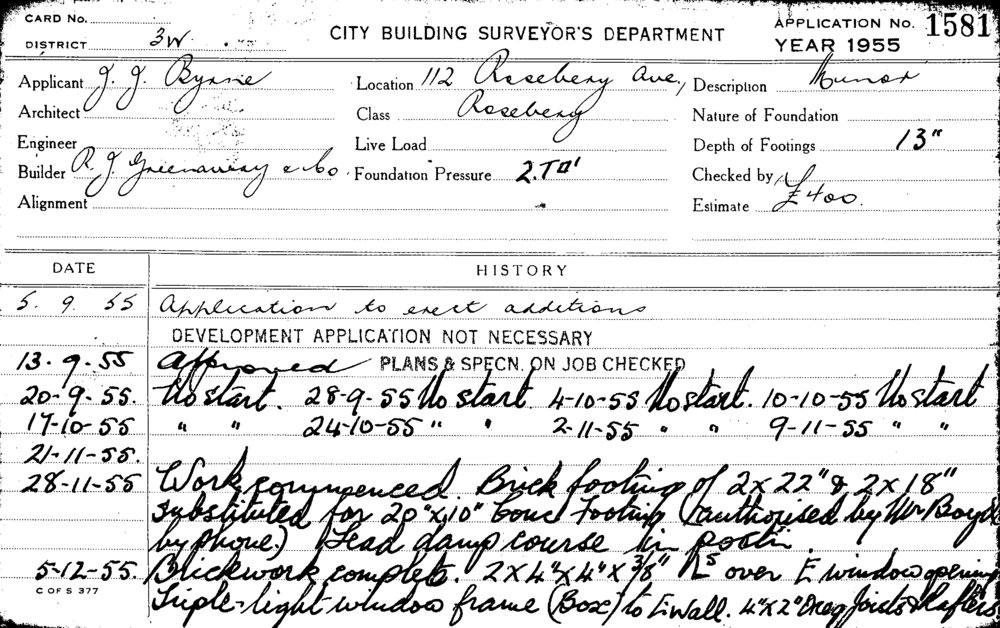 CARD No.
DISTRICT 3W
CITY BUILDING SURVEYOR'S DEPARTMENT
APPLICATION No. 1581
YEAR 1955
Applicant J. J. Byrne
Location 112 Rosebery Ave,
Description Minor
Architect
Class Rosebery
Nature of Foundation
Engineer
Live Load
Depth of Footings 13"
Builder R. J. Greenaway & Co.
Foundation Pressure 2.T□'
Checked by
Alignment
Estimate £400.
DATE HISTORY
5. 9. 55 Application to erect additions
DEVELOPMENT APPLICATION NOT NECESSARY
13-9-55 Approved PLANS & SPECN. ON JOB CHECKED
20-9-55. No start. 28-9-55 No start. 4-10-55 No start. 10-10-55 No start
17-10-55 " " 24-10-55 " " 2-11-55 " " 9-11-55 " "
21-11-55.
28-11-55 Work commenced. Brick footing of 2x22" & 2x18"
substituted for 20"x10" Conc Footing (authorised by Mr Boyd
by phone.) Lead damp course in positn.
5-12-55. Brickwork complete. 2x4"x4"x3/8" Ls over E window opening
C OF S 377
Triple-light window frame (Box) to E. Wall. 4"x2" Oreg Joists & Rafters